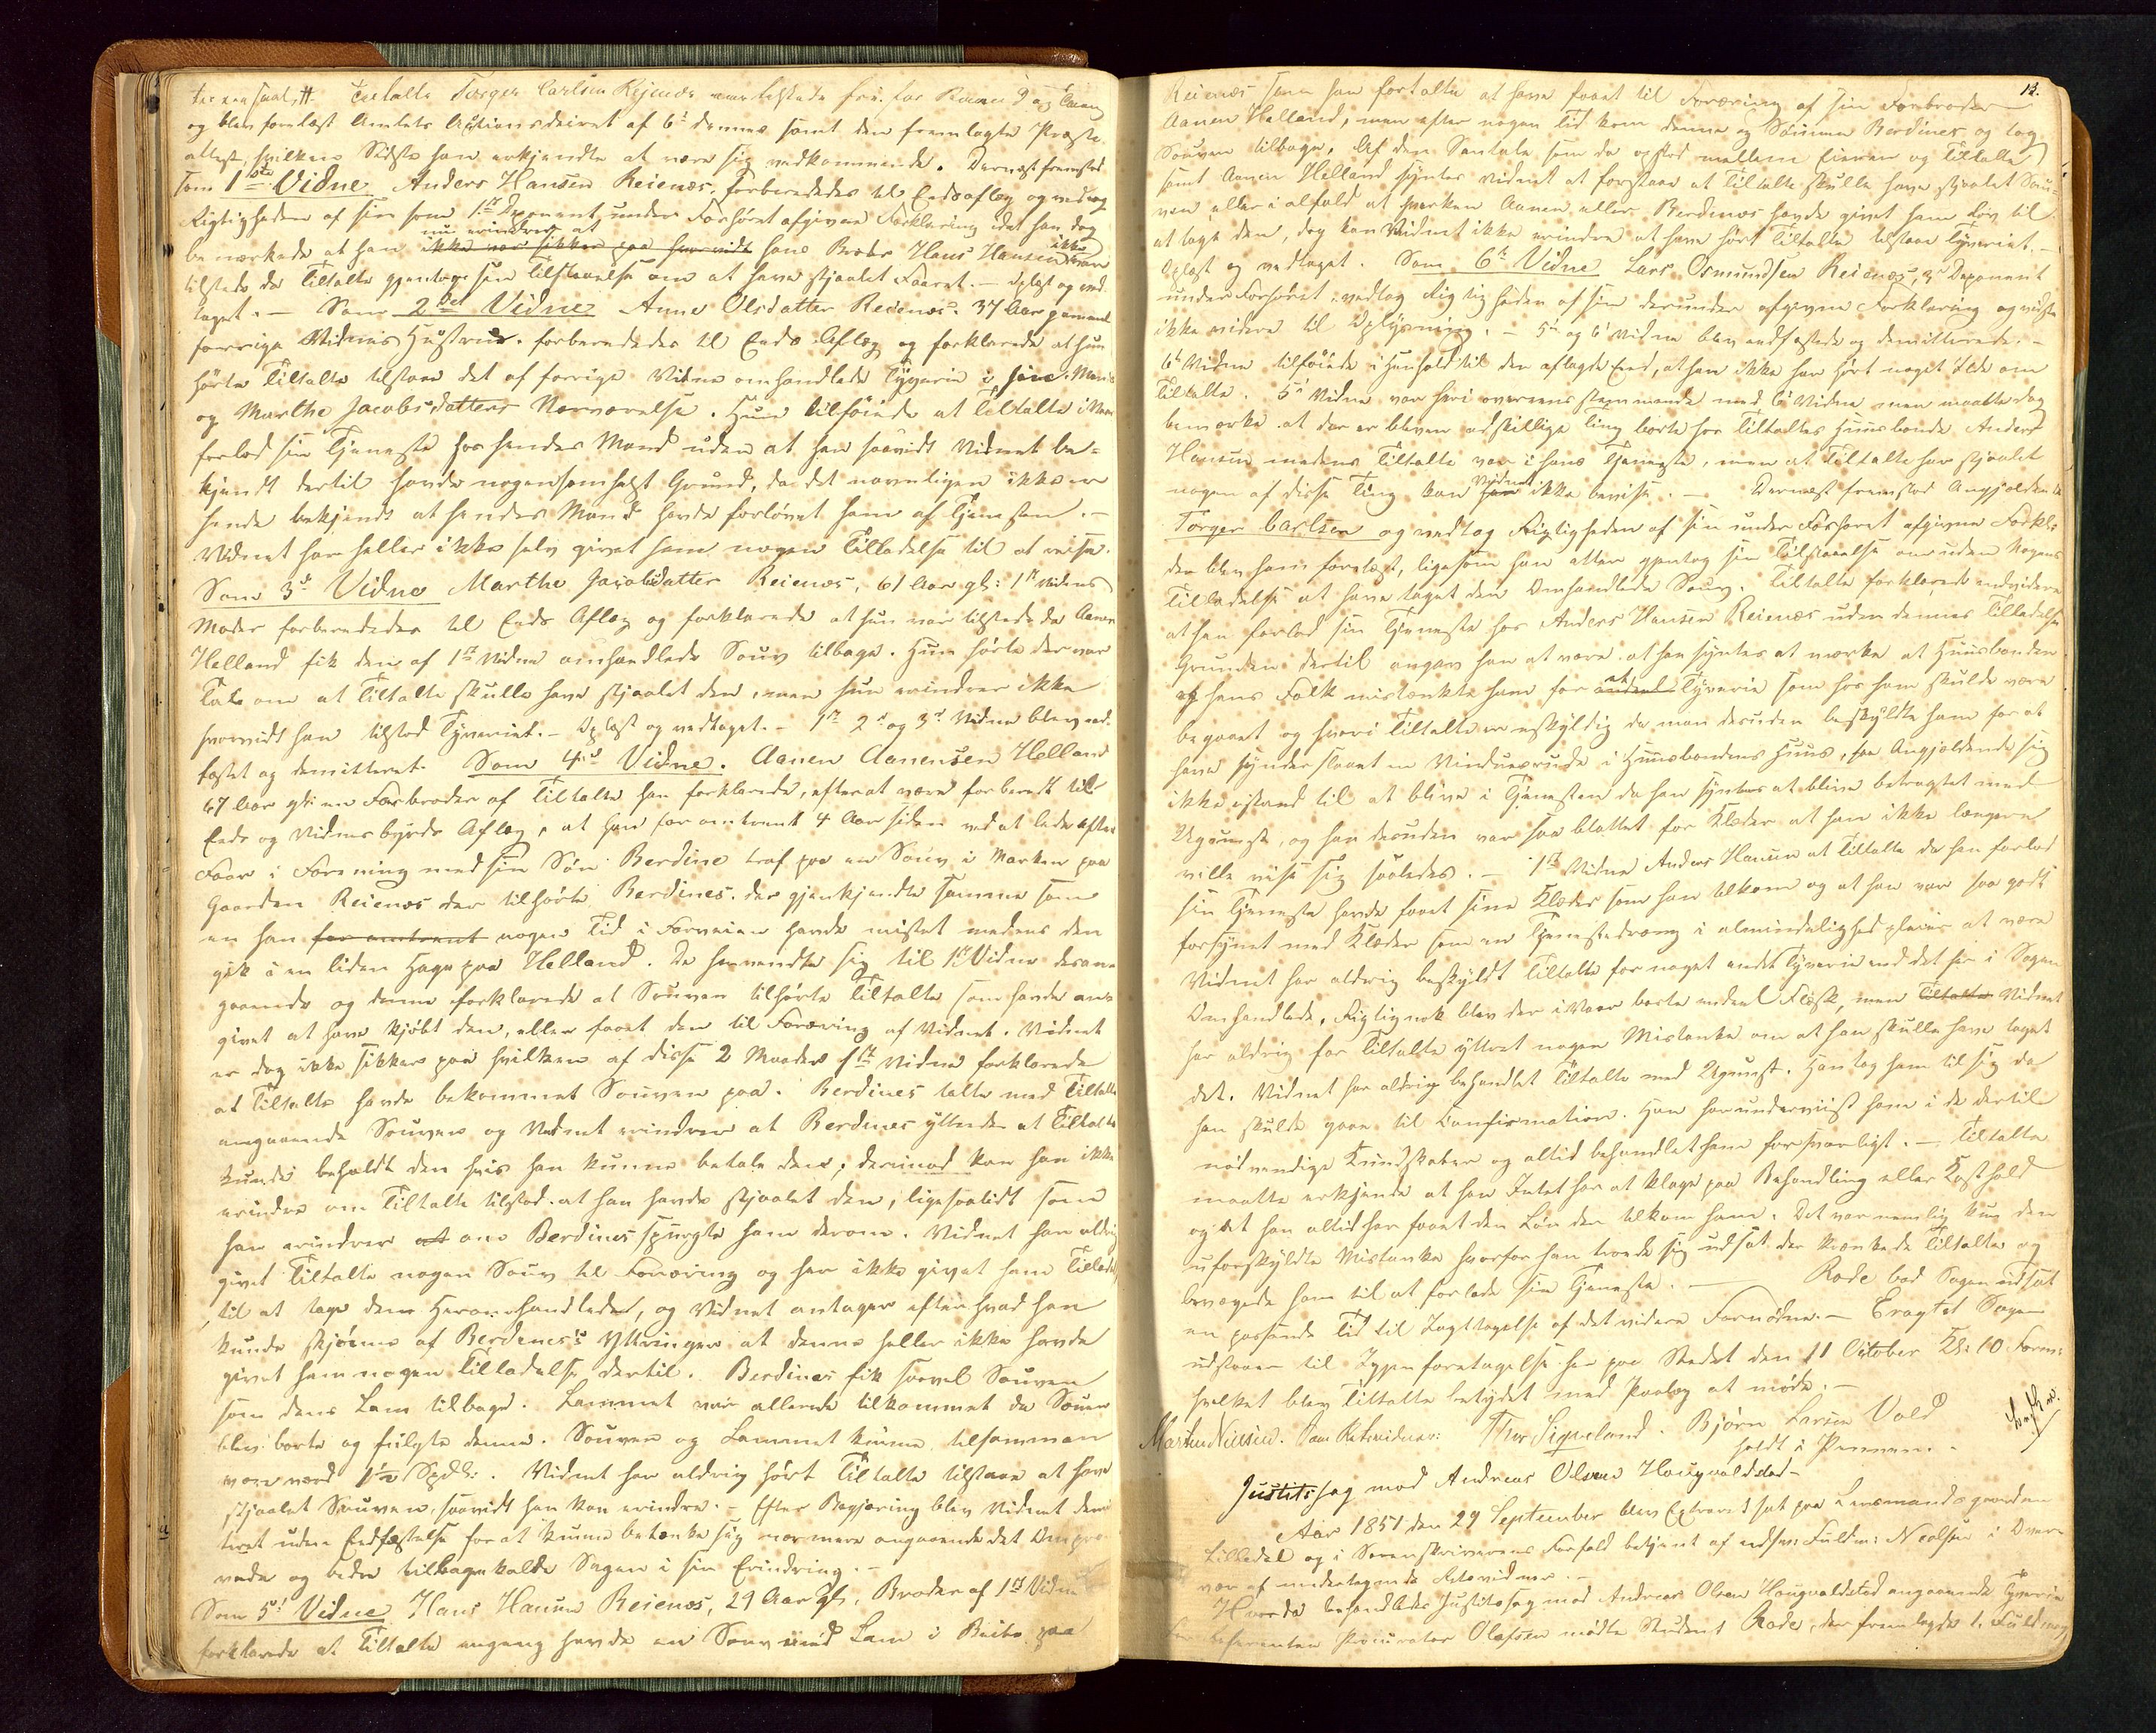 Tiltalte Torger Carlsen Reienæs var tilstede fri for Baand og Tvang
og blev forelæst Amtets Actionsdecret af 6te dennes samt den fremlagte Præste-
attest, hvilken Sidste han erkjendte at være sig vedkommende. Dernæst fremstod
som 1ste Vidne Anders Hansen Reienæs, forberededes til Eds Aflæg og vedtog
Rigtigheden af sin som 1ste Deponent under Forhöret afgivne Forklaring idet han dog
nu erindrer at
bemærkede at han ikke var sikker paa hvorvidt hans Broder Hans Hansen ikke var
tilstede da Tiltalte gjentog sin Tilstaaelse om at have stjaalet Faaret. – Oplæst og ved-
taget. – Som 2det Vidne Anne Olsdatter Reienæs, 37 Aar gammel
forrige Vidnes Hustrue, forberededes til Eds Aflæg og forklarede at hun
hörte Tiltalte tilstaae det af forrige Vidne omhandlede Tyverie i sin Mands
og Marthe Jacobsdatters Nærværelse. Hun tilföiede at Tiltalte i Vaar
forlod sin Tjeneste hos hendes Mand uden at han saavidt Vidnet be-
kjendt dertil havde nogensomhelst Grund, da det navnligen ikke er
hende bekjendt at hendes Mand havde forlövet ham af Tjenesten. –
Vidnet har heller ikke selv givet ham nogen Tilladelse til at reise.
Som 3die Vidne Marthe Jacobsdatter Reienæs, 61 Aar gl: 1ste Vidnes
Moder forberededes til Eds Aflæg og forklarede at hun var tilstede da Aanen
Helland fik den af 1ste Vidne omhandlede Souv tilbage. Hun hörte der var
Tale om at Tiltalte skulle have stjaalet den, men hun erindrer ikke
hvorvidt han tilstod Tyveriet. – Oplæst og vedtaget. – 1ste 2det og 3die Vidne blev ed-
fæstet og demitteret. Som 4de Vidne. Aanen Aanensen Helland
67 Aar gl: en Farbroder af Tiltalte han forklarede, efterat være forberedt til
Eds og Vidnesbyrds Aflæg, at han for omtrent 4 Aar siden ved at lede efter
Faar i Forening med sin Sön Berdine traf paa en Souv i Marken paa
Gaarden Reienæs der tilhörte Berdines, der gjenkjendte samme som
en han for omtrent nogen Tid i Forveien havde mistet medens den
gik i en liden Hage paa Helland. De henvendte sig til 1ste Vidne desan-
gaaende og denne forklarede at Souven tilhörte Tiltalte som havde an-
givet at have kjöbt den, eller faaet den til Foræring af Vidnet. Vidnet
er dog ikke sikker paa hvilken af disse 2 Maader 1ste Vidne forklarede
at Tiltalte havde bekommet Souven paa. Berdines talte med Tiltalte
angaaende Souven og Vidnet erindrer at Berdines yttrede at Tiltalte
kunde beholdt den hvis han kunne betale den, derimod kan han ikke
erindre om Tiltalte tilstod at han havde stjaalet den, ligesaalidt som
han erindrer at om Berdines spurgte ham derom. Vidnet har aldrig
givet Tiltalte nogen Souv til Foræring og har ikke givet ham Tilladelse
til at tage den Heromhandlede, og Vidnet antager efter hvad han
kunde skjönne af Berdines's Yttringer at denne heller ikke havde
givet ham nogen Tilladelse dertil. Berdines fik saavel Souven
som dens Lam tilbage. Lammet var allerede tilkommet da Souven
blev borte og fulgte denne. Souven og Lammet kunne tilsammen
være værd 1½ Spdlr. Vidnet har aldrig hört Tiltalte tilstaae at have
stjaalet Souven, saavidt han kan erindre. – Efter Begjæring blev Vidnet demit-
teret uden Edfæstelse for at kunne betænke sig nærmere angaaende det
og bedre tilbagekalde Sagen i sin Erindring. –
Som 5te Vidne Hans Hansen Reienæs, 29 Aar gl, Broder af 1ste Vidne
forklarede at Tiltalte engang havde en Souv med Lam i Beite paa
13.
Reienæs som han fortalte at have faaet til Foræring af sin Farbroder
Aanen Helland, men efter nogen Tid kom denne og Sönnen Berdines og tog
Souven tilbage. Af den Samtale som da opstod mellem disse og Tiltalte
samt Aanen Helland syntes Vidnet at forstaae at Tiltalte skulle have stjaalet Sou-
ven eller i alfald at hverken Aanen eller Berdines havde givet ham Lov til
at tage den, dog kan Vidnet ikke erindre at have hört Tiltalte tilstaae Tyveriet. –
Oplæst og vedtaget. Som 6te Vidne Lars Osmundsen Reienæs, 3die Deponent
under Forhöret, vedtog Rigtigheden af sin derunder afgivne Forklaring og vidste
ikke videre til Oplysning. – 5te og 6te Vidne blev edfæstede og demitterede. –
6te Vidne tilföiede i Henhold til den aflagte Eed, at han ikke har hört noget Ilde om
Tiltalte. 5te Vidne var heri overeensstemmende med 6te Vidne men maatte dog
bemærke at der er bleven adskillige Ting borte hos Tiltaltes Huusbonde Anders
Hansen medens Tiltalte var i hans Tjeneste, men at Tiltalte har stjaalet
nogen af disse Ting kan han Vidnet ikke bevise. – Dernæst fremstod Angjældende
Torger Carlsen og vedtog Rigtigheden af sin under Forhöret afgivne Forkl:
der blev ham forelæst, ligesom han atter gjentog sin Tilstaaelse om uden Nogens
Tilladelse at have taget den Omhandlede Souv. Tiltalte forklarede endvidere
at han forlod sin Tjeneste hos Anders Hansen Reienæs uden dennes Tilladelse
Grunden dertil angav han at være at han syntes at mærke at Huusbonden
og hans Folk mistænkte ham for andet Tyverie som hos ham skulde være
begaaet og hvori Tiltalte er uskyldig da man desuden beskyldte ham for at
have sönderslaaet en Vinduesrude i Huusbondens Huus, saa Angjældende sig
ikke istand til at blive i Tjenesten da han syntes at blive betragtet med
Ugunst, og han desuden var saa blottet for Klæder at han ikke længere
ville vise sig saaledes. – 1ste Vidne Anders Hansen at Tiltalte da han forlod
sin Tjeneste havde faaet sine Klæder som han tilkom og at han var saa godt
forsynet med Klæder som en Tjenestedreng i almindelighed pleier at være
Vidnet har aldrig beskyldt Tiltalte for noget andet Tyverie end det her i Sagen
Omhandlede. Rigtignok blev der i Vaar borte endeel Flesk, men Tiltalte Vidnet
har aldrig for Tiltalte yttret nogen Mistanke om at han skulle have taget
det. Vidnet har aldrig behandlet Tiltalte med Ugunst. Han tog ham til sig da
han skulde gaae til Confirmation. Han har underviist ham i de dertil
nödvendige Kundskaber og altid behandlet ham forsvarligt. – Tiltalte
maatte erkjende at han Intet har at klage paa Behandling eller Kosthold
og at han altid har faaet den Lön der tilkom ham. Det var nemlig kun den
uforskyldte Mistanke hvorfor han troede sig udsat der krænkede Tiltalte og
bevægede ham til at forlade sin Tjeneste. – Rode bad Sagen udsat
en passende Tid til Iagttagelse af det videre Fornødne. – Eragtet Sagen
udstaaer til Igjenforetagelse her paa Stedet den 11 October Kl: 10 Form:
hvilket blev Tiltalte betydet med Paalæg at möde. –
Martin Nielsen. Som Retsvidner: Thor Sigveland. Bjørn Larsen Vold
holdt i Pennen. –
Justitssag mod Andreas Olsen Hougvaldstad –
Aar 1851 den 29 September blev Extraret sat paa Lensmandsgaarden
Lilledal og i Sorenskriverens Forfald betjent af edsv: Fuldm: Neolsen i Over-
vær af undertegnede Retsvidner. –
Hvorda behandledes Justitssag mod Andreas Olsen Hougvaldstad angaaende Tyverie
For Referenten Procurator Olafsen mödte Student Rode, der fremlagde 1. Fuldmagt